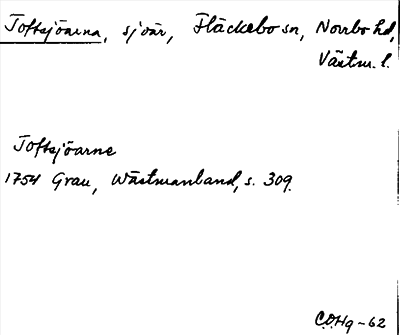 Toftsjöarna, sjöar, Fläckebo sn, Norrbo hd,
Västm. l.
Toftsjöarne
1754 Grau, Wästmanland, s. 309.
C.O.Hg-62